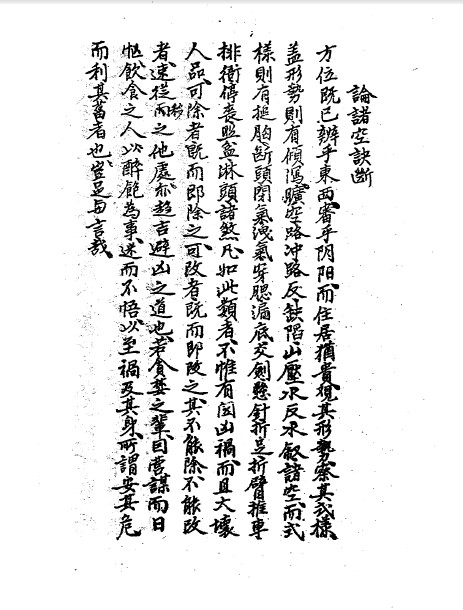 論諸空訣斷
方位既已辨乎東西審乎阴阳而住居猶貴視其形勢察其式樣
盖形勢則有傾瀉曠空路冲路反缺陷山壓水反水叙諸空而式
樣則有搥胸斷頭閉氣洩氣穿腮漏底交劍懸針折足折臂推車
排衙停丧照盆淋頭諸煞凡如此類者不惟有関凶禍而且大壞
人品可除者既而即除之可改者既而即改之其不能除不能改
者速從而移之他處亦趋吉避凶之道也若貪婪之輩日营謀而日
飲食之人以醉飽為事迷而不悟以至禍及其身所謂安其危
而利其菑者也豈足与言哉